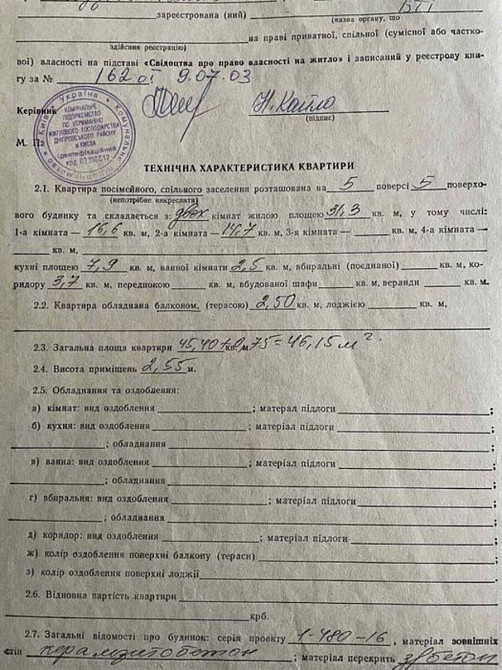 БТІ
зареєстрована (ний)
(назва органу, що
на праві приватної, спільної (сумісної або частко-
здійснив реєстрацію)
вої) власності на підставі «Свідоцтва про право власності на житло» і записаний у реєстрову кни-
гу за № 162 9.07.03
Керівник
(підпис)
М. П.
Україна
КОМУНАЛЬНЕ
ПІДПРИЄМСТВО
ПО УТРИМАННЮ
ЖИТЛОВОГО ГОСПОДАРСТВА
ДНІПРОВСЬКОГО РАЙОНУ
м КИЄВА
ТЕХНІЧНА ХАРАКТЕРИСТИКА КВАРТИРИ
2.1. Квартира посімейного, спільного заселення розташована на 5 поверсі 5 поверхо-
(непотрібне викреслити)
вого будинку та складається з двох кімнат жилою площею 31,3 кв. м, у тому числі:
1-а кімната — 16,6 кв. м, 2-а кімната — 14,7 кв. м, 3-я кімната — кв. м, 4-а кімната —
кв. м,
кухні площею 7,9 кв. м, ванної кімнати 2,5 кв. м, вбиральні (поєднаної) кв. м, ко-
ридору 3,7 кв. м, передпокою кв. м, вбудованої шафи кв. м, веранди кв. м.
2.2. Квартира обладнана балконом, (терасою) 2,50 кв. м, лоджією кв. м,
2.3. Загальна площа квартири 45,40+0,75=46,15 м²
2.4. Висота приміщень 2,55 м.
2.5. Обладнання та оздоблення:
а) кімнат: вид оздоблення ; матерал підлоги
б) кухня: вид оздоблення ; матеріал підлоги
; обладнання
в) ванна: вид оздоблення ; матеріал підлоги
; обладнання
г) вбиральня: вид оздоблення ; матеріал підлоги
; обладнання
д) коридор: вид оздоблення ; матеріал підлоги
ж) колір оздоблення поверхні балкону (тераси)
з) колір оздоблення поверхні лоджії
2.6. Відновна вартість квартири
крб.
2.7. Загальні відомості про будинок: серія проекту 1-480-16, матеріал зовнішніх
стін керамзитобетон ; матеріал перекрить з/бетон